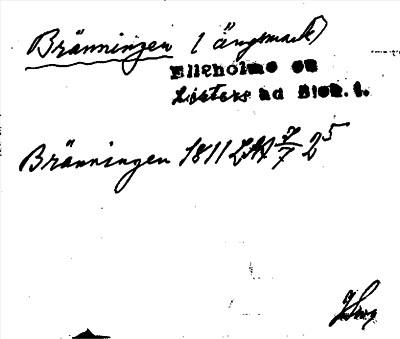 Bränningen (ängsmark)
Elleholms sn
Listers hd Blek. l.
Bränningen 1811 LM 7/7 2⁵